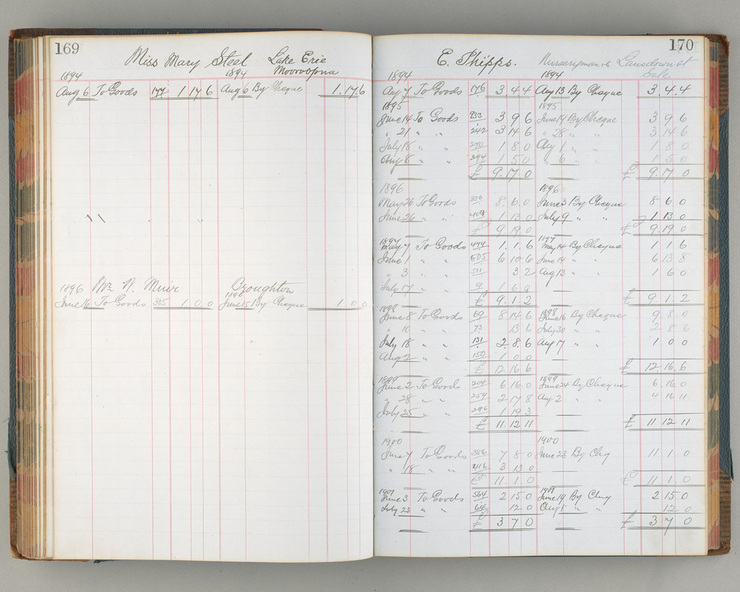 169
Miss Mary Steel Lake Erie
Mooroopna
1894 1894
Aug 6 To Goods 177 1 17 6 Aug 6 By Cheque 1 17 6
1896 Mr N. Muir Croughton
June 16 To Goods 315 1 0 0 June 15 By Cheque 1 0 0
170
E. Phipps. Nurseryman &
1894 1894
Aug 7 To Goods 176 3 4 4 Aug 13 By Cheque 3 4 4
1895 1895
June 14 To Goods 3 9 6 June 19 By Cheque 3 9 6
" 21 " " 242 3 14 6 " 28 " " 3 14 6
July 18 " " 1 8 0 Aug 1 " " 1 8 0
Aug 8 " " 1 5 0 " 6 " " 1 5 0
£ 9 17 0 £ 9 17 0
1896 1896
May 26 To Goods 8 6 0 June 3 By Cheque 8 6 0
June 26 " " 1 13 0 July 9 " " 1 13 0
£ 9 19 0 £ 9 19 0
1897 1897
May 7 To Goods 1 1 6 May 14 By Cheque 1 1 6
June 1 " " 6 10 6 June 14 " " 6 13 8
" 3 " " 3 2 Aug 13 " " 1 6 0
July 17 " " 1 6 0
£ 9 1 2 £ 9 1 2
1898 1898
June 8 To Goods 69 8 14 6 June 16 By Cheque 9 8 0
" 10 " " 13 6 July 20 " " 2 8 6
July 18 " " 131 2 8 6 Aug 17 " " 1 0 0
Aug 2 " " 150 1 0 0
£ 12 16 6 £ 12 16 6
1899 1899
June 2 To Goods 6 16 0 June 24 By Cheque 6 16 0
" 28 " " 254 2 17 8 Aug 2 " " 4 16 11
July 25 " " 296 1 19 3
£ 11 12 11 £ 11 12 11
1900 1900
June 7 To Goods 7 8 0 June 23 By Chq 11 1 0
" 18 " " 3 13 0
£ 11 1 0 £ 11 1 0
1901 1901
June 3 To Goods 564 2 15 0 June 14 By Chq 2 15 0
July 23 " " 12 0 Aug 1 " " 12 0
£ 3 7 0 £ 3 7 0